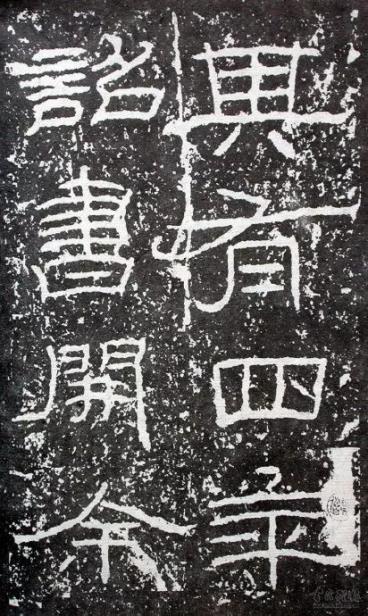 其有四年
詔書開余